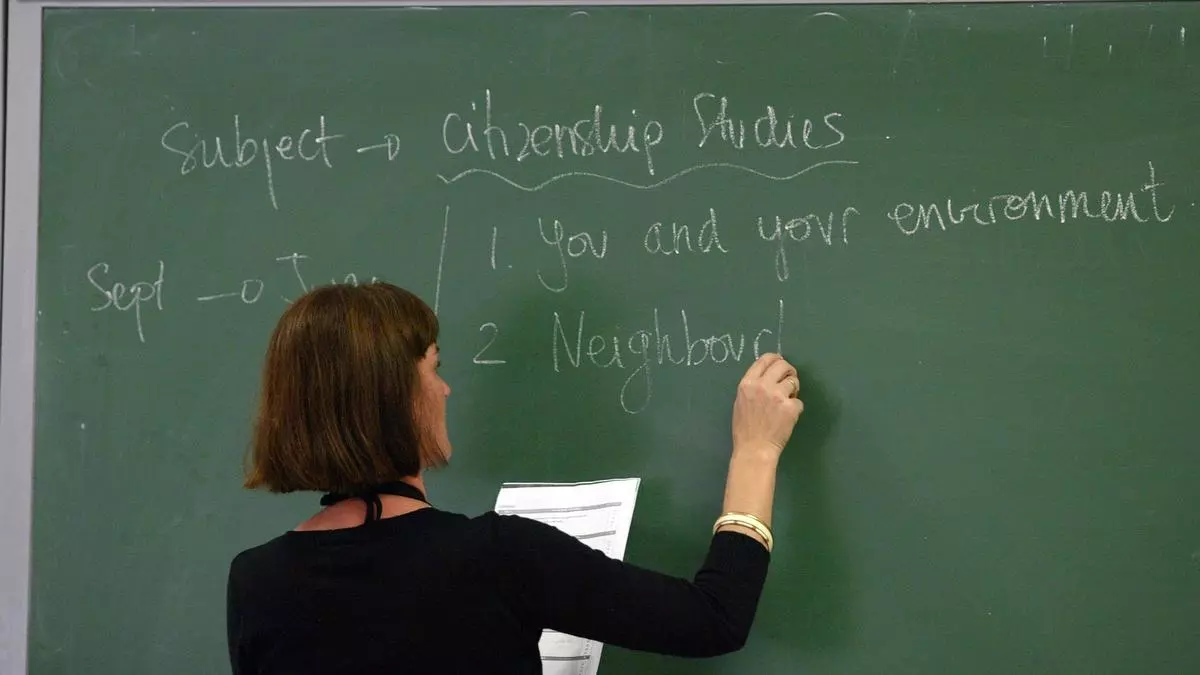 Subject → Citizenship Studies
1. You and your environment
Sept →
2 Neighbour